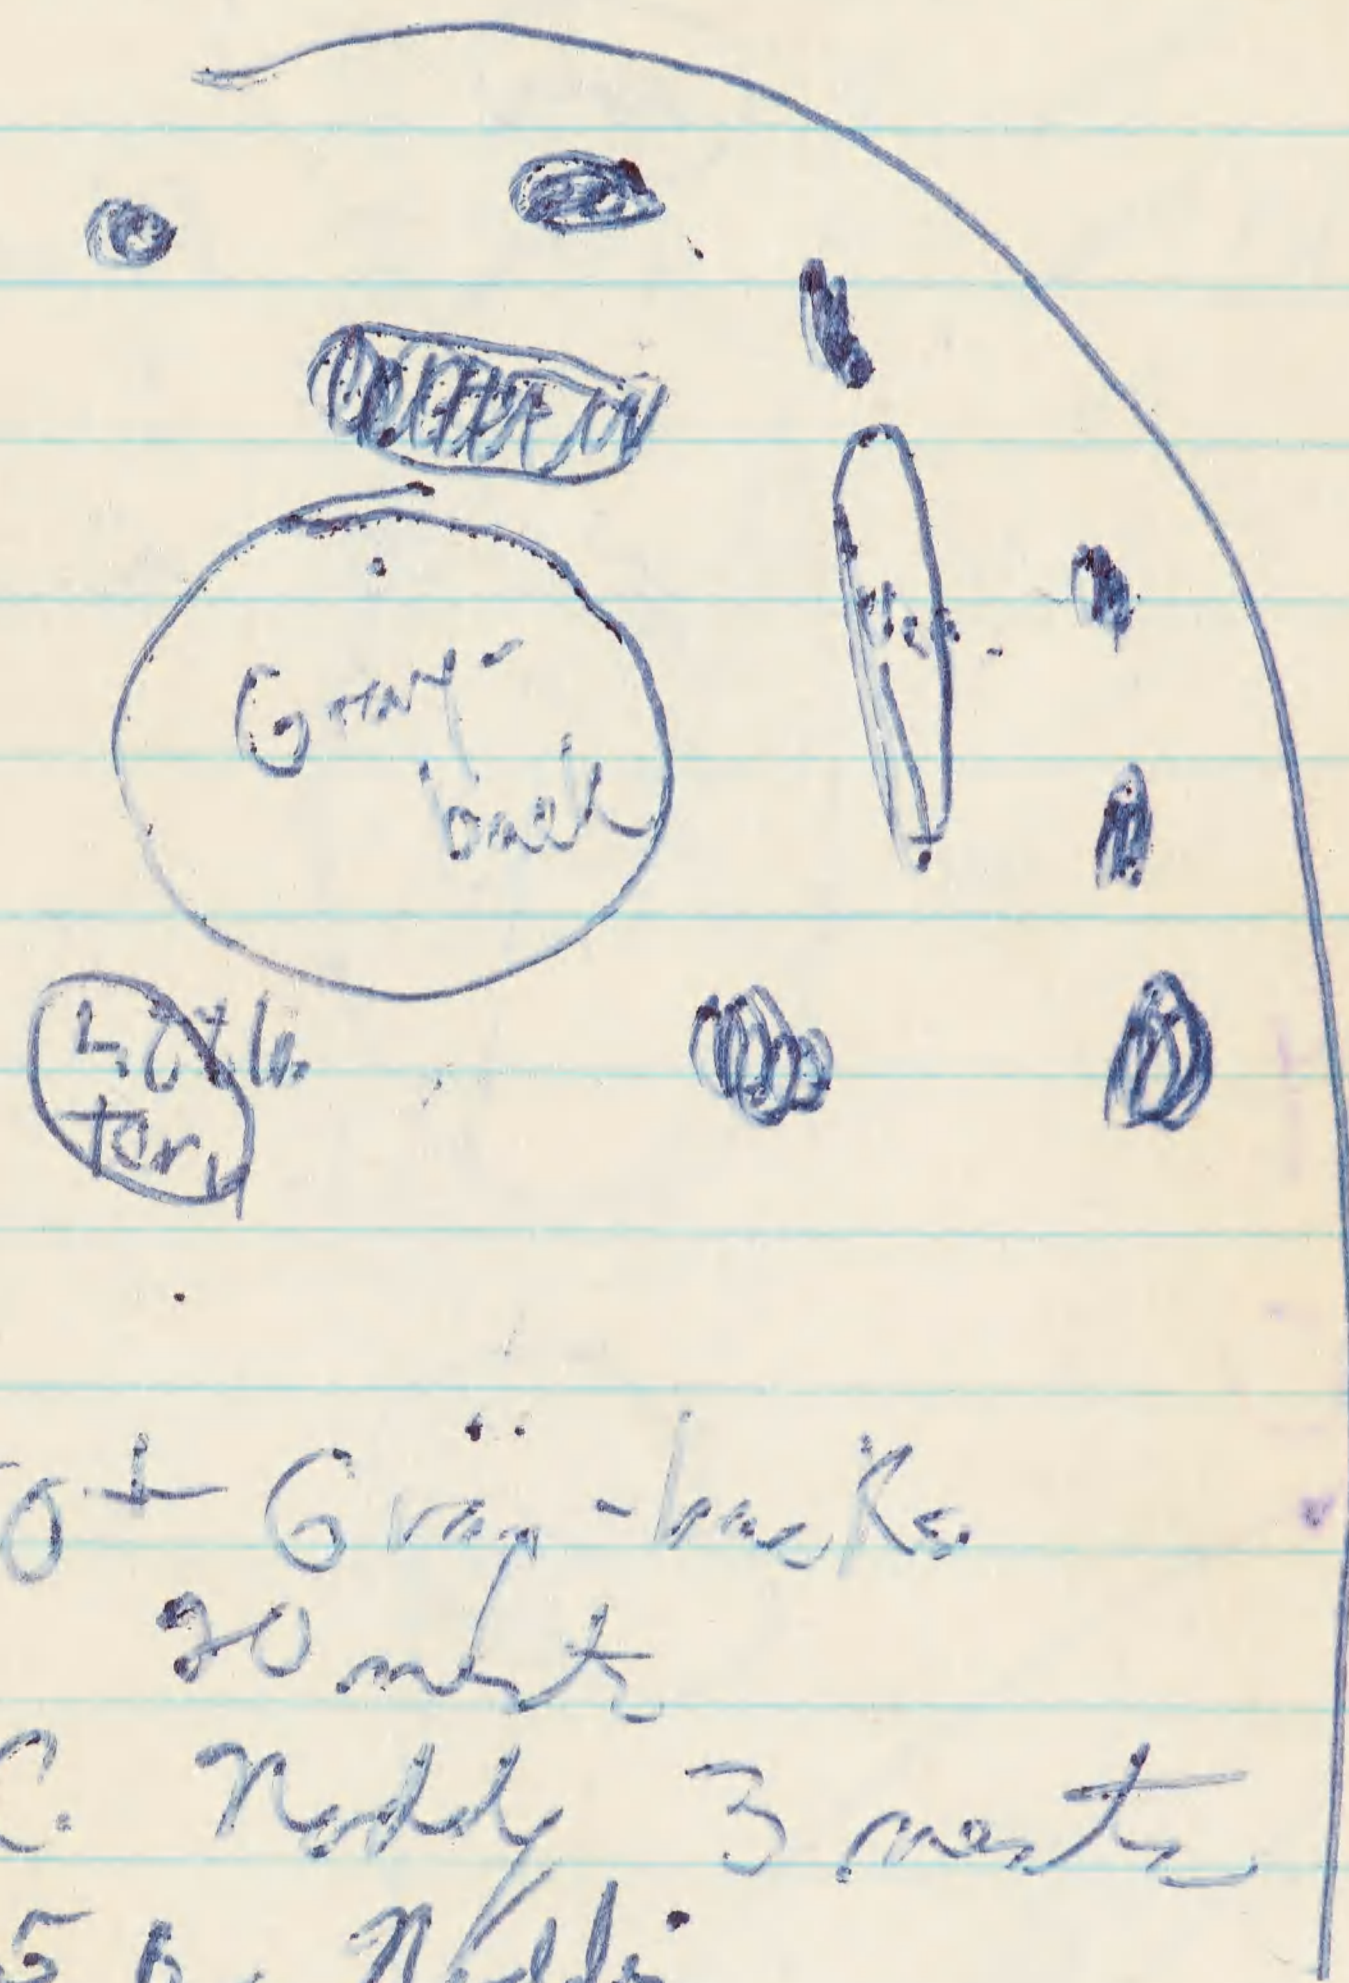 Gray-
back
Little
tern
0± Gray-backs
20 nests
C. Noddy 3 nests
5 Noddi